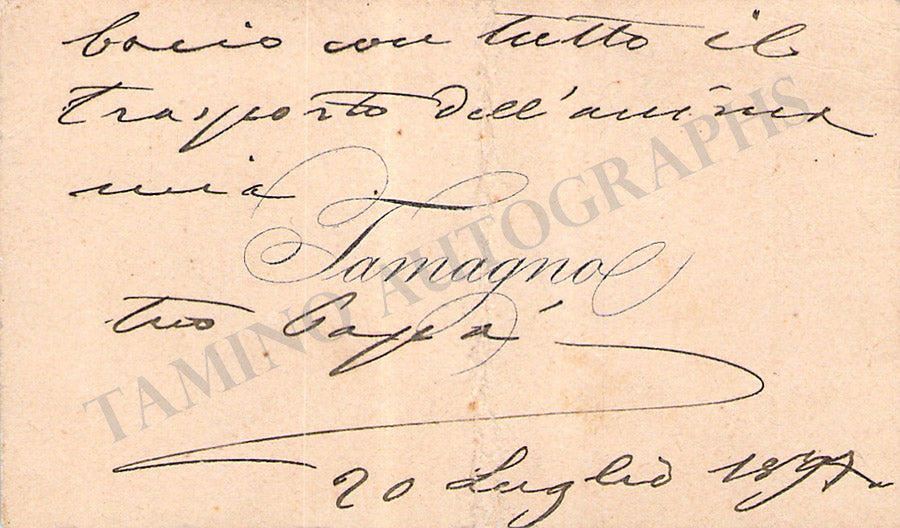 bacio con tutto il
trasporto dell'anima
mia.
Tamagno
tuo Papà
20 Luglio
TAMINO AUTOGRAPHS